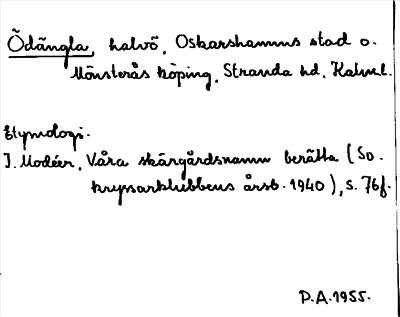 Ödängla, halvö, Oskarshamns stad o.
Mönsterås köping, Stranda hd, Kalml.
Etymologi.
I. Modéer, Våra skärgårdsnamn berätta (So.
kryssarklubbens årsb. 1940), s. 76f.
P.A. 1955.